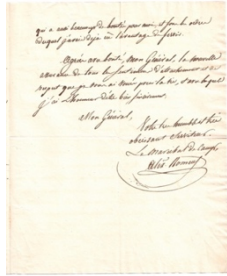 qui a tant beaucoup de bontés pour moi, et sous les ordres
duquel j'avois déjà eu l'avantage de servir.
Agréez mon Général, la nouvelle
assurance de tous les sentimens d'attachement et de
respect que je vous ai voués pour la vie, et avec lesquels
j'ai l'honneur d'être bien sincèrement
Mon Général,
Votre très humble et très
obéissant Serviteur
Le Maréchal de Camp